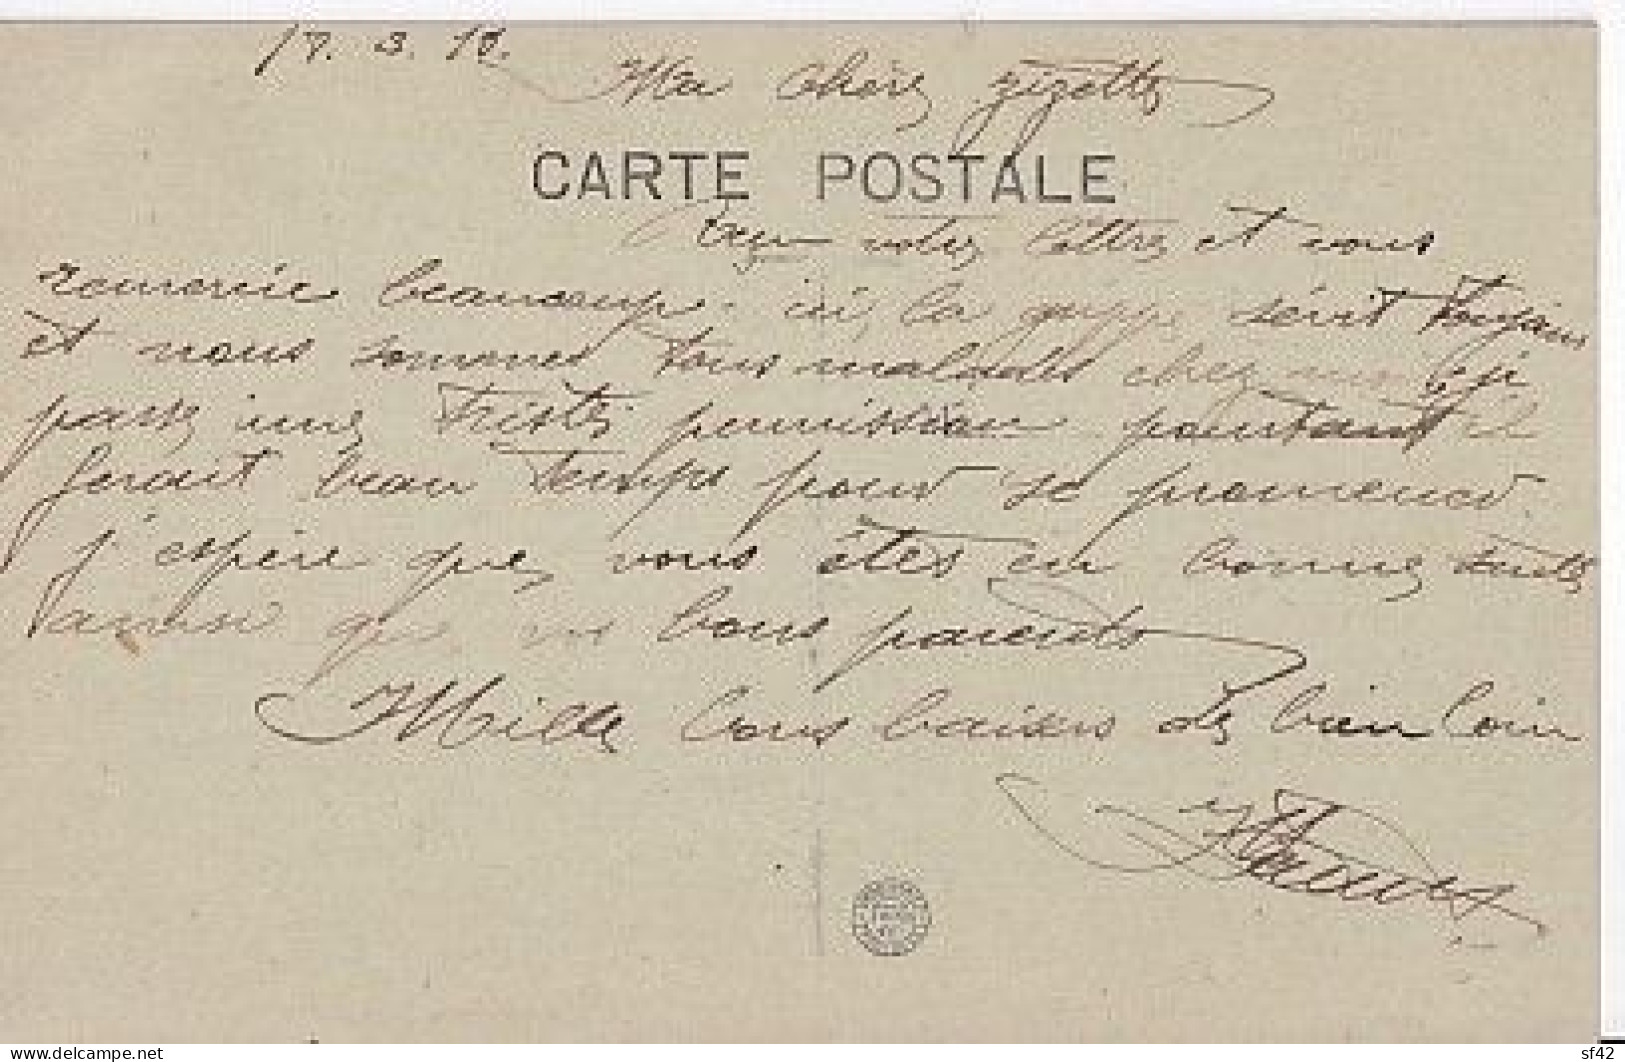 17. 3. 18.
Ma chère Zizette
CARTE POSTALE
Reçu votre lettre et vous
remercie beaucoup. ici, la grippe sévit toujours
et nous sommes tous malades chez nous, j'ai
passé une triste permission pourtant il
ferait beau temps pour se promener.
j'espère que vous êtes en bonne santé
ainsi que vos bons parents
Mille bons baisers de bien loin
delcampe.net
sf42